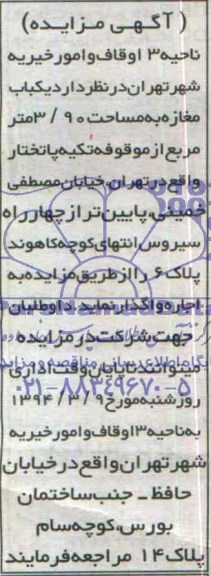 ( آگهی مزایده )
ناحیه ۳ اوقاف و امور خیریه
شهر تهران در نظر دارد یکباب
مغازه به مساحت ۳/۹۰ متر
مربع از موقوفه تکیه پاتختار
واقع در تهران، خیابان مصطفی
خمینی، پایین تر از چهارراه
سیروس انتهای کوچه کاهوند
پلاک ۶ را از طریق مزایده به
اجاره واگذار نماید. داوطلبان
جهت شرکت در مزایده
میتوانند تا پایان وقت اداری
روز شنبه مورخ ۱۳۹۴/۳/۹
به ناحیه ۳ اوقاف و امور خیریه
شهر تهران واقع در خیابان
حافظ ـ جنب ساختمان
بورس، کوچه سام
پلاک ۱۴ مراجعه فرمایند
۰۲۱-۸۸۳۴۹۶۷۰-۵